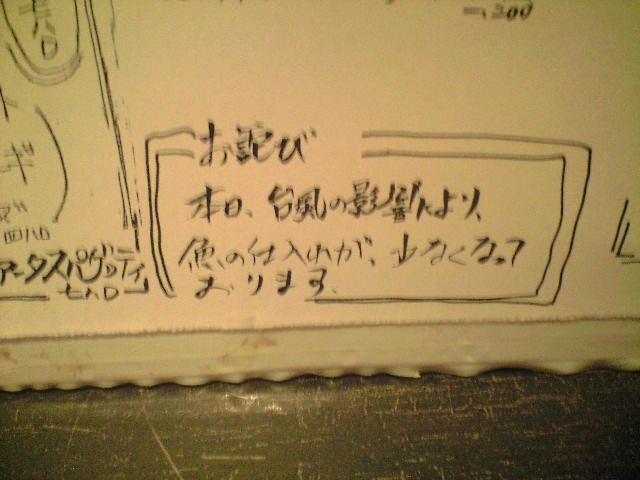 一、200
お詫び
本日、台風の影響により、
魚の仕入れが、少なくなって
おります。
四八〇
ータスパゲッティ
七八〇